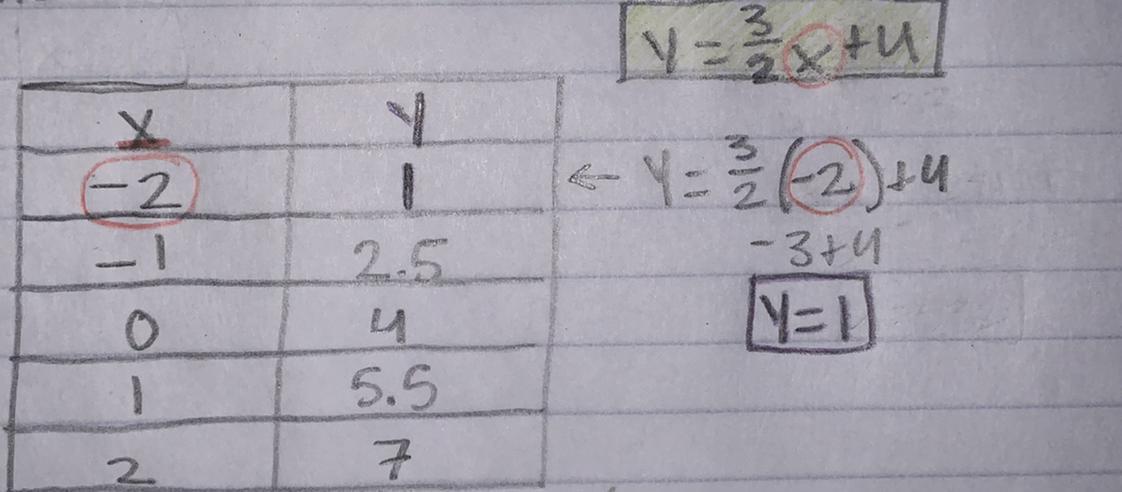 y = 3/2 x + 4
x y
-2 1 ← y = 3/2 (-2) + 4
-1 2.5 -3+4
0 4 y = 1
1 5.5
2 7